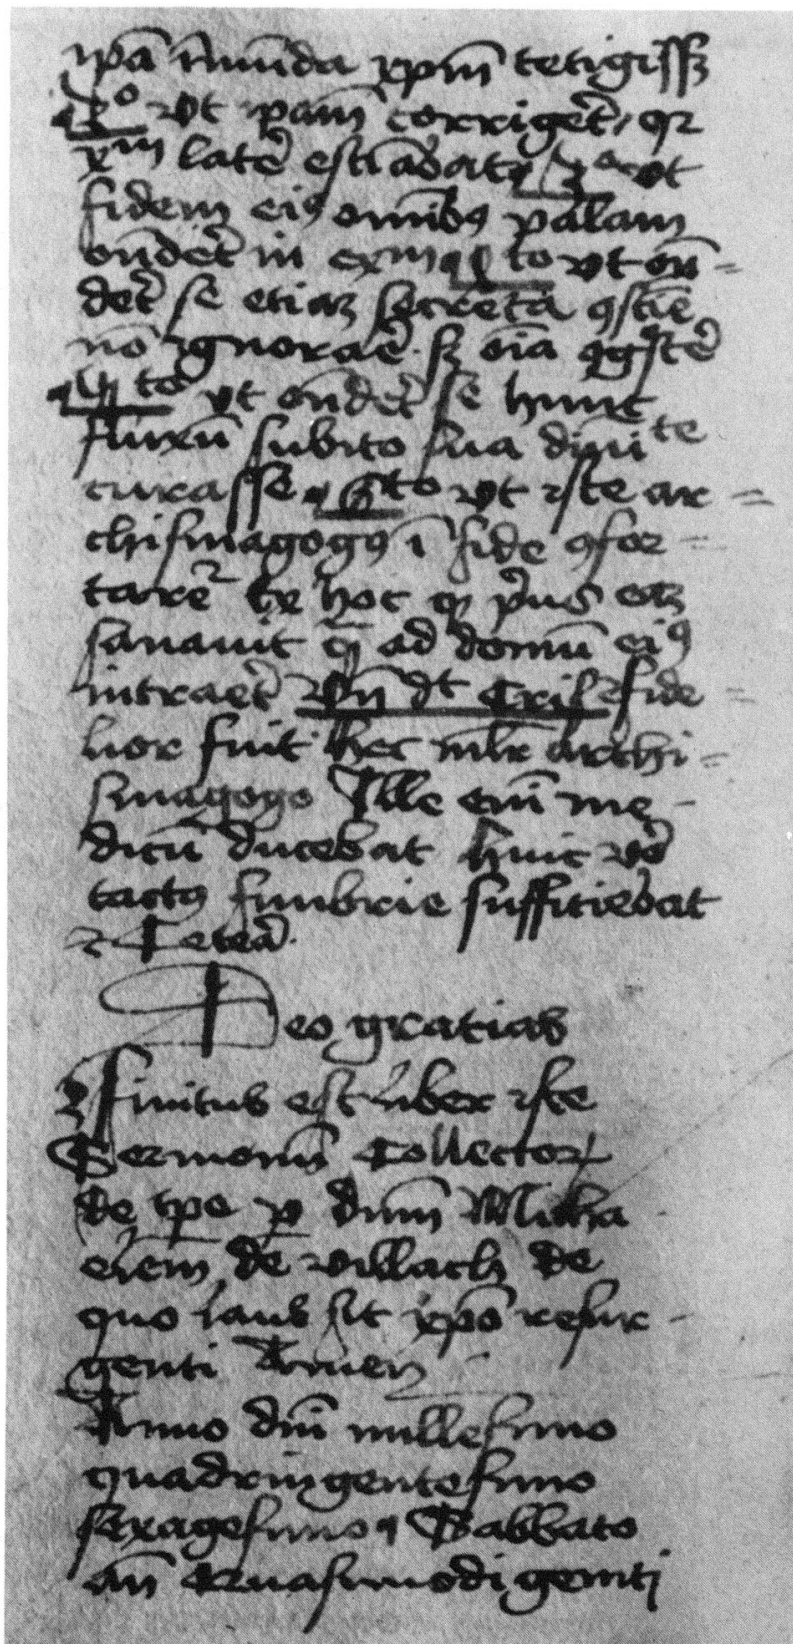 ip̄a īmūda xp̄m tetigiss3
2o vt ip̄am corriget̄ / q2
xp̄m late̅ estiābat 3o vt
fidem ei9 omībꝰ palam
ond̄et̄ in exm̄ 4to vt on̄=
det̄ se etiaz secreta ꝯscīe
nō ignorae̅ sz oīa ꝯgste̅
5to vt ond̄et̄ se hunc
fluxū subito sua dīnite
curasse 6to vt iste ar=
chisinagogꝰ ī fide ꝯfor=
tare2 ex hoc q p̄us eaz
sanavit q̄ ad domū eiꝰ
intraet̄ Vn̄ dt Cril2 fide=
lior fuit hec mlr̄ archi=
sinagogo Ille eni̅ me-
dicū ducebat huic vo̅
tactꝰ fimbrie sufficiebat
⁊ Cetea̅.
Deo gratias
Finitus est liber iste
Sermonū Collectoꝝ
de tp̄e ꝑ dnm̄ Micha
elem̄ de villach de
quo laus sit xp̄o resur-
genti Amen
Anno dni̅ millesimo
quadringentesimo
sexagesimo Sabbato
an̄ Quasimodi geniti